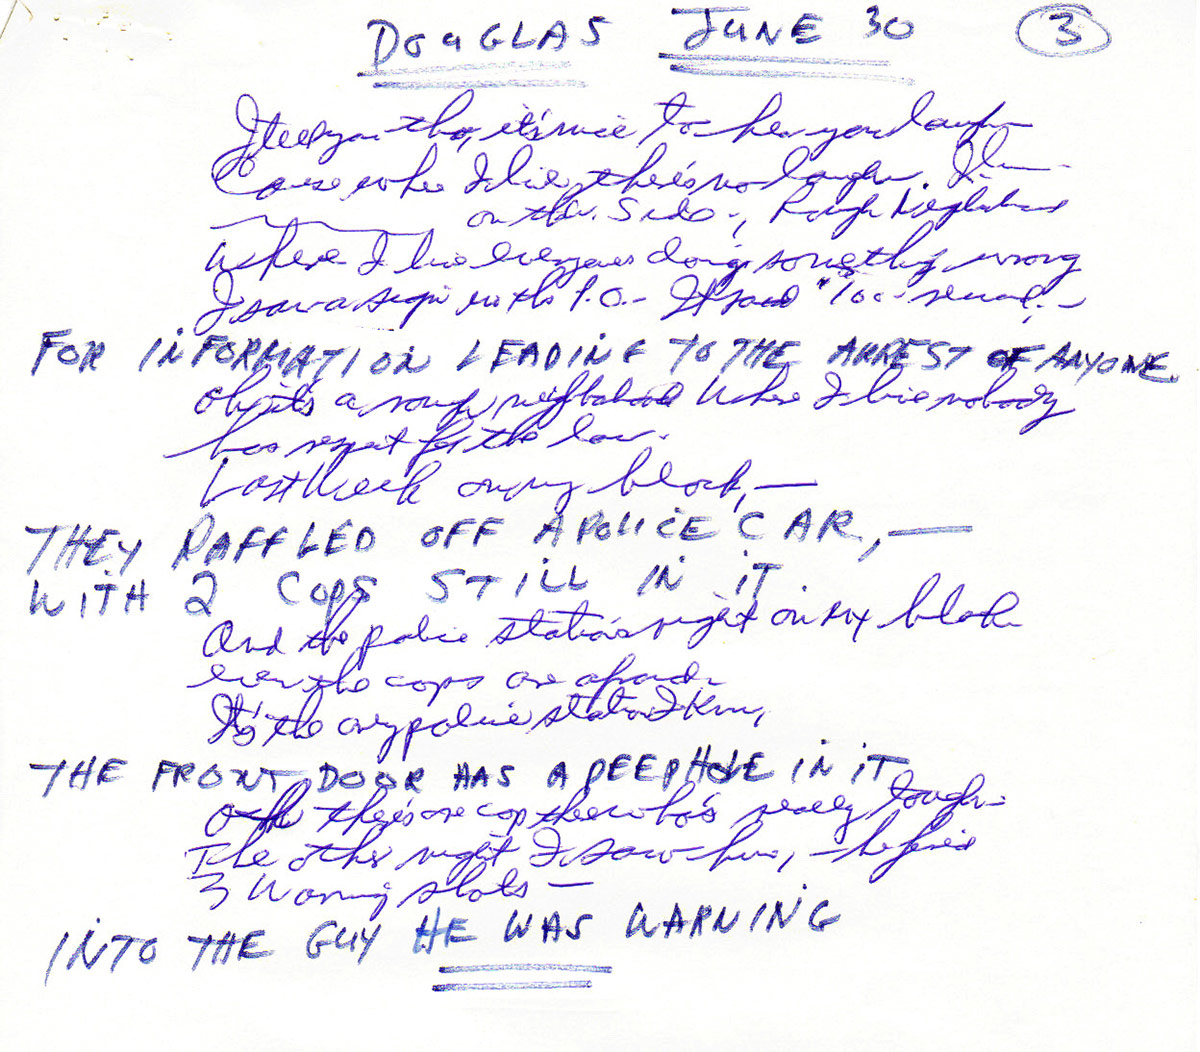 DOUGLAS JUNE 30 3
I tell you tho, it's nice to hear you laugh
Cause where I live, there's no laughs. I live
on the . Side -, Rough Neighborhood
Where I live everyones doing something wrong
I saw a sign in the P.O. - It said "100- reward, -
FOR INFORMATION LEADING TO THE ARREST OF ANYONE
oh, it's a rough neighborhood Where I live nobody
has respect for the law.
Last Week on my block, —
THEY RAFFLED OFF A POLICE CAR, —
WITH 2 COPS STILL IN IT
And the police station's right on MY block
even the cops are afraid
It's the only police station I know,
THE FRONT DOOR HAS A PEEPHOLE IN IT
there's one cop there who's really tough -
The other night I saw him, - he fired
3 Warning shots —
INTO THE GUY HE WAS WARNING